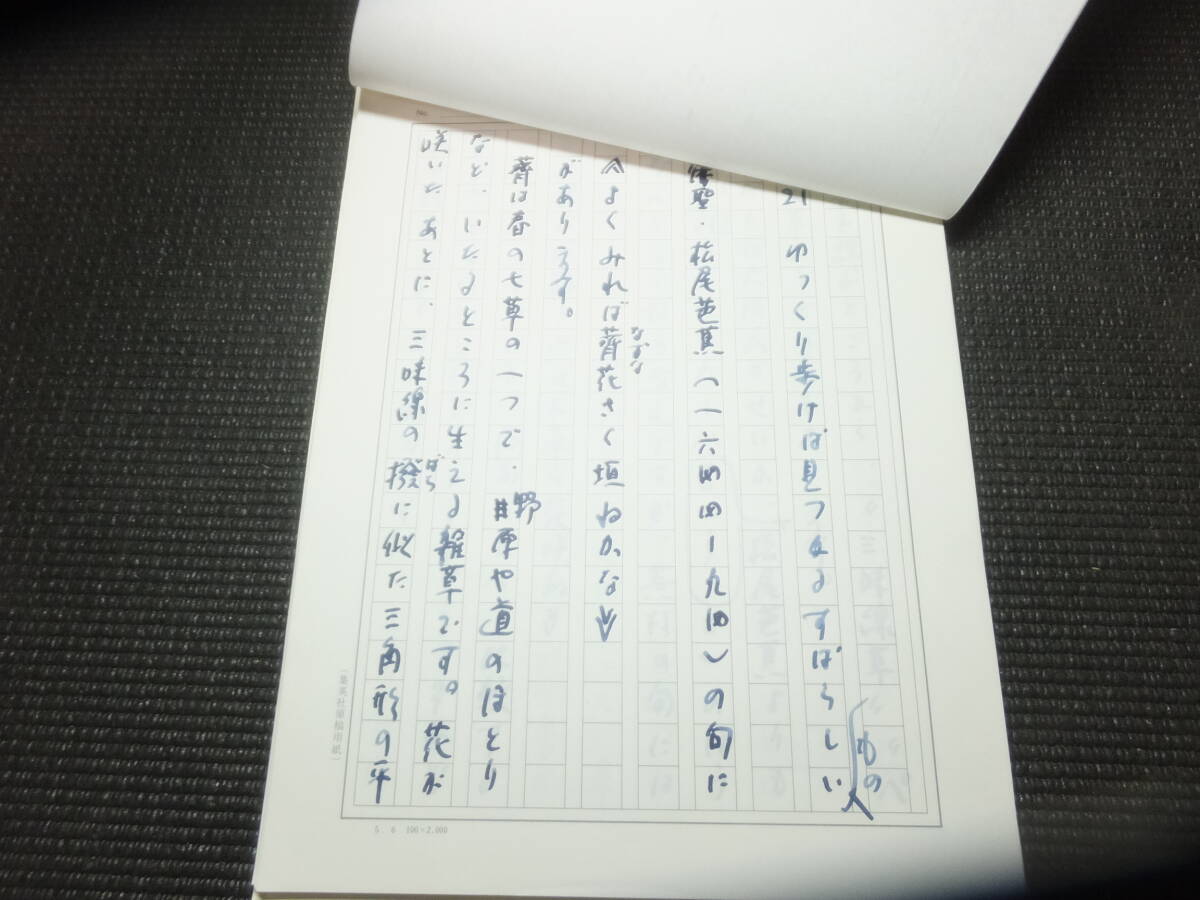 No.
21 ゆっくり歩けば見つかるすばらしい
もの
俳聖・松尾芭蕉(一六四四―九四)の句に
《よくみれば薺花さく垣ねかな》
なずな
があります。
薺は春の七草の一つで、野原や道のほとり
など、いたるところに生える雑草です。花が
咲いたあとに、三味線の撥に似た三角形の平
ばち
(集英社原稿用紙)
5.6 100×2,000